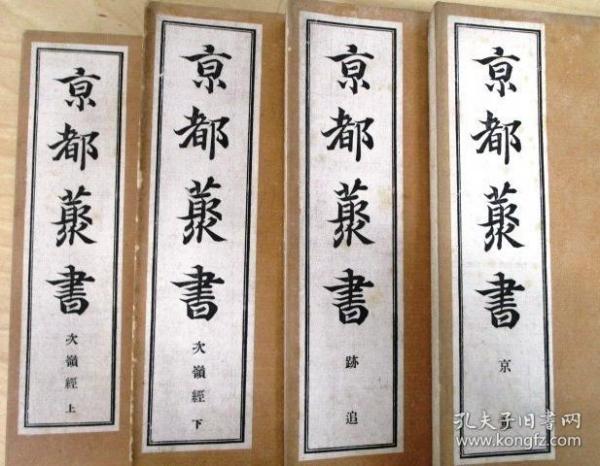 亰都藂書
次嶺經上
亰都藂書
次嶺經下
亰都藂書
跡追
亰都藂書
京
孔夫子旧书网
www.kongfz.com